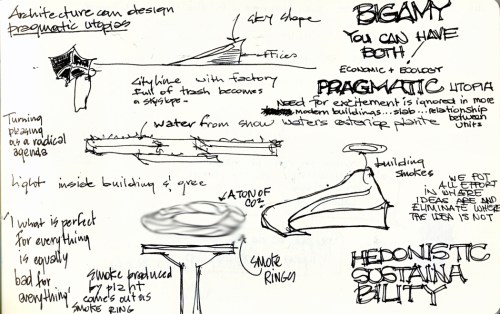 Architecture can design
pragmatic utopias
SKY Slope
offices
Cityline with factory
Full of trash becomes
a skyslope-
BIGAMY
YOU CAN HAVE
BOTH!
ECONOMIC + ECOLOGY
PRAGMATIC UTOPIA
Need for excitement is ignored in more
modern buildings... slab... relationship
between
units
Turning
pleasing
as a radical
agenda
water from snow waters exterior plante
light inside building & gree
building
smokes
WE PUT
ALL EFFORT
IN WHERE
IDEAS ARE AND
ELIMINATE WHERE
THE IDEA IS NOT
A TON OF
CO2
SMOKE
RINGS
'I what is perfect
for everything
is equally
bad for
everything'
smoke produced
by plant
comes out as
SMOKE RING
HEDONISTIC
SUSTAINA
BILITY